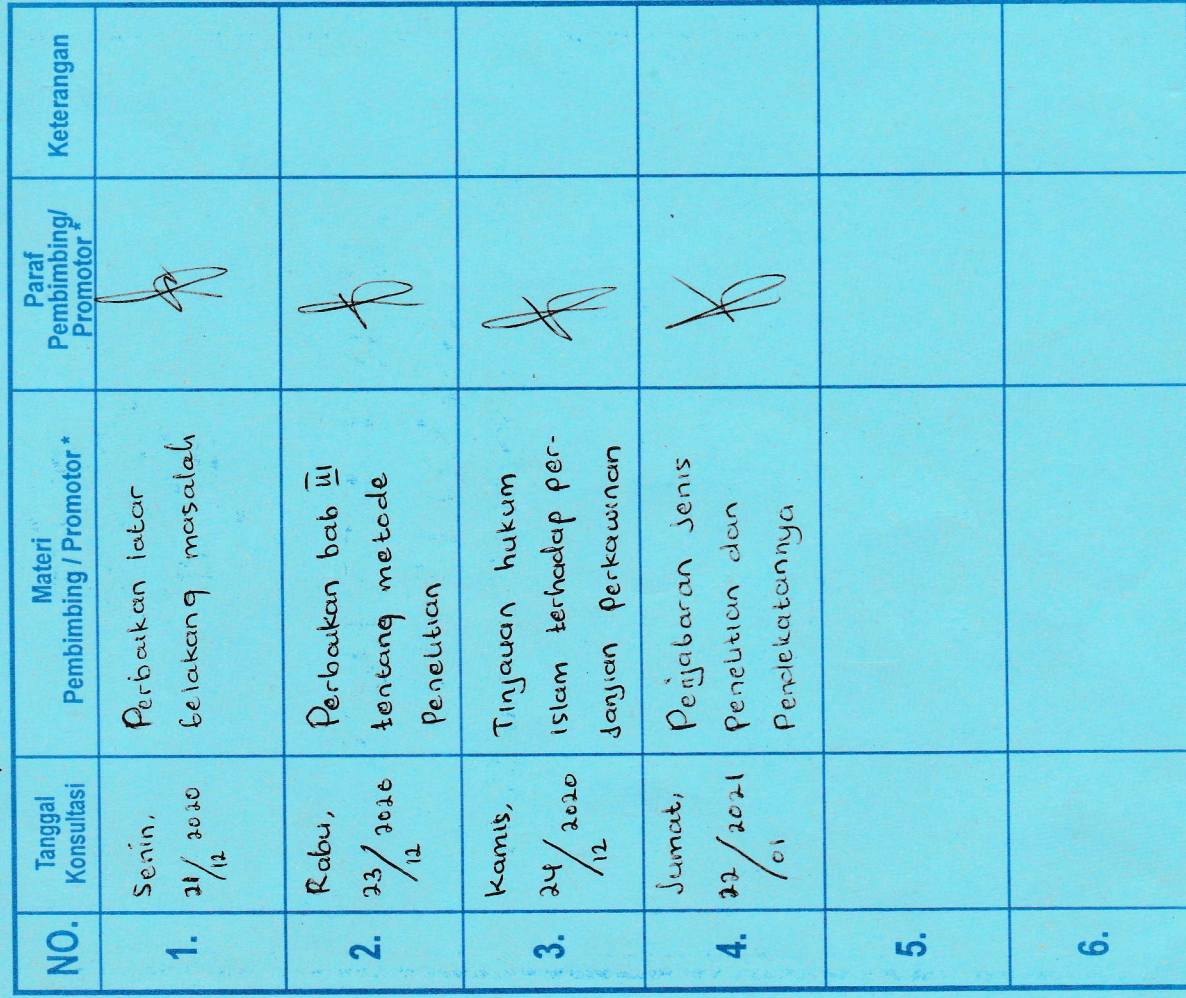 NO.
Tanggal
Konsultasi
Materi
Pembimbing / Promotor *
Paraf
Pembimbing/
Promotor *
Keterangan
1.
Senin,
21/12 2020
Perbaikan latar
belakang masalah
2.
Rabu,
23/12 2020
Perbaikan bab III
tentang metode
Penelitian
3.
Kamis,
24/12 2020
Tinjauan hukum
islam terhadap per-
Janjian Perkawinan
4.
Jumat,
22/01 2021
Penjabaran Jenis
Penelitian dan
Pendekatannya
5.
6.